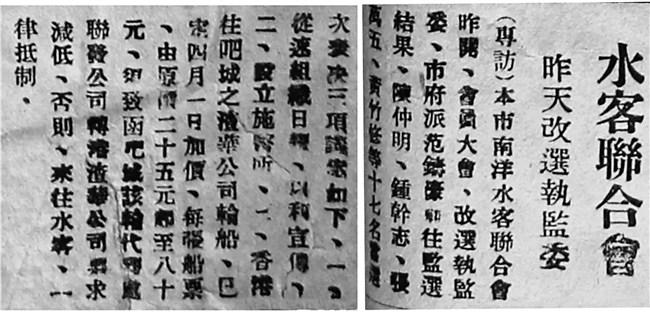 水客聯合會
昨天改選執監委
（專訪）本市南洋水客聯合會
昨開、會員大會、改選執監
委、市府派范鑄濠前往監選
結果、陳仲明、鍾幹志、張
萬五、黃竹等十七名當選
次表决三項議案如下、一、
從速組織日報、以利宣傳、
二、設立施醫所、三、香港
往吧城之渣華公司輪船、已
定四月一日加價、每張船票
、由原價二十五元起至八十
元、致函吧城該輪代理處
聯發公司轉港渣華公司要求
減低、否則、來往水客、一
律抵制、